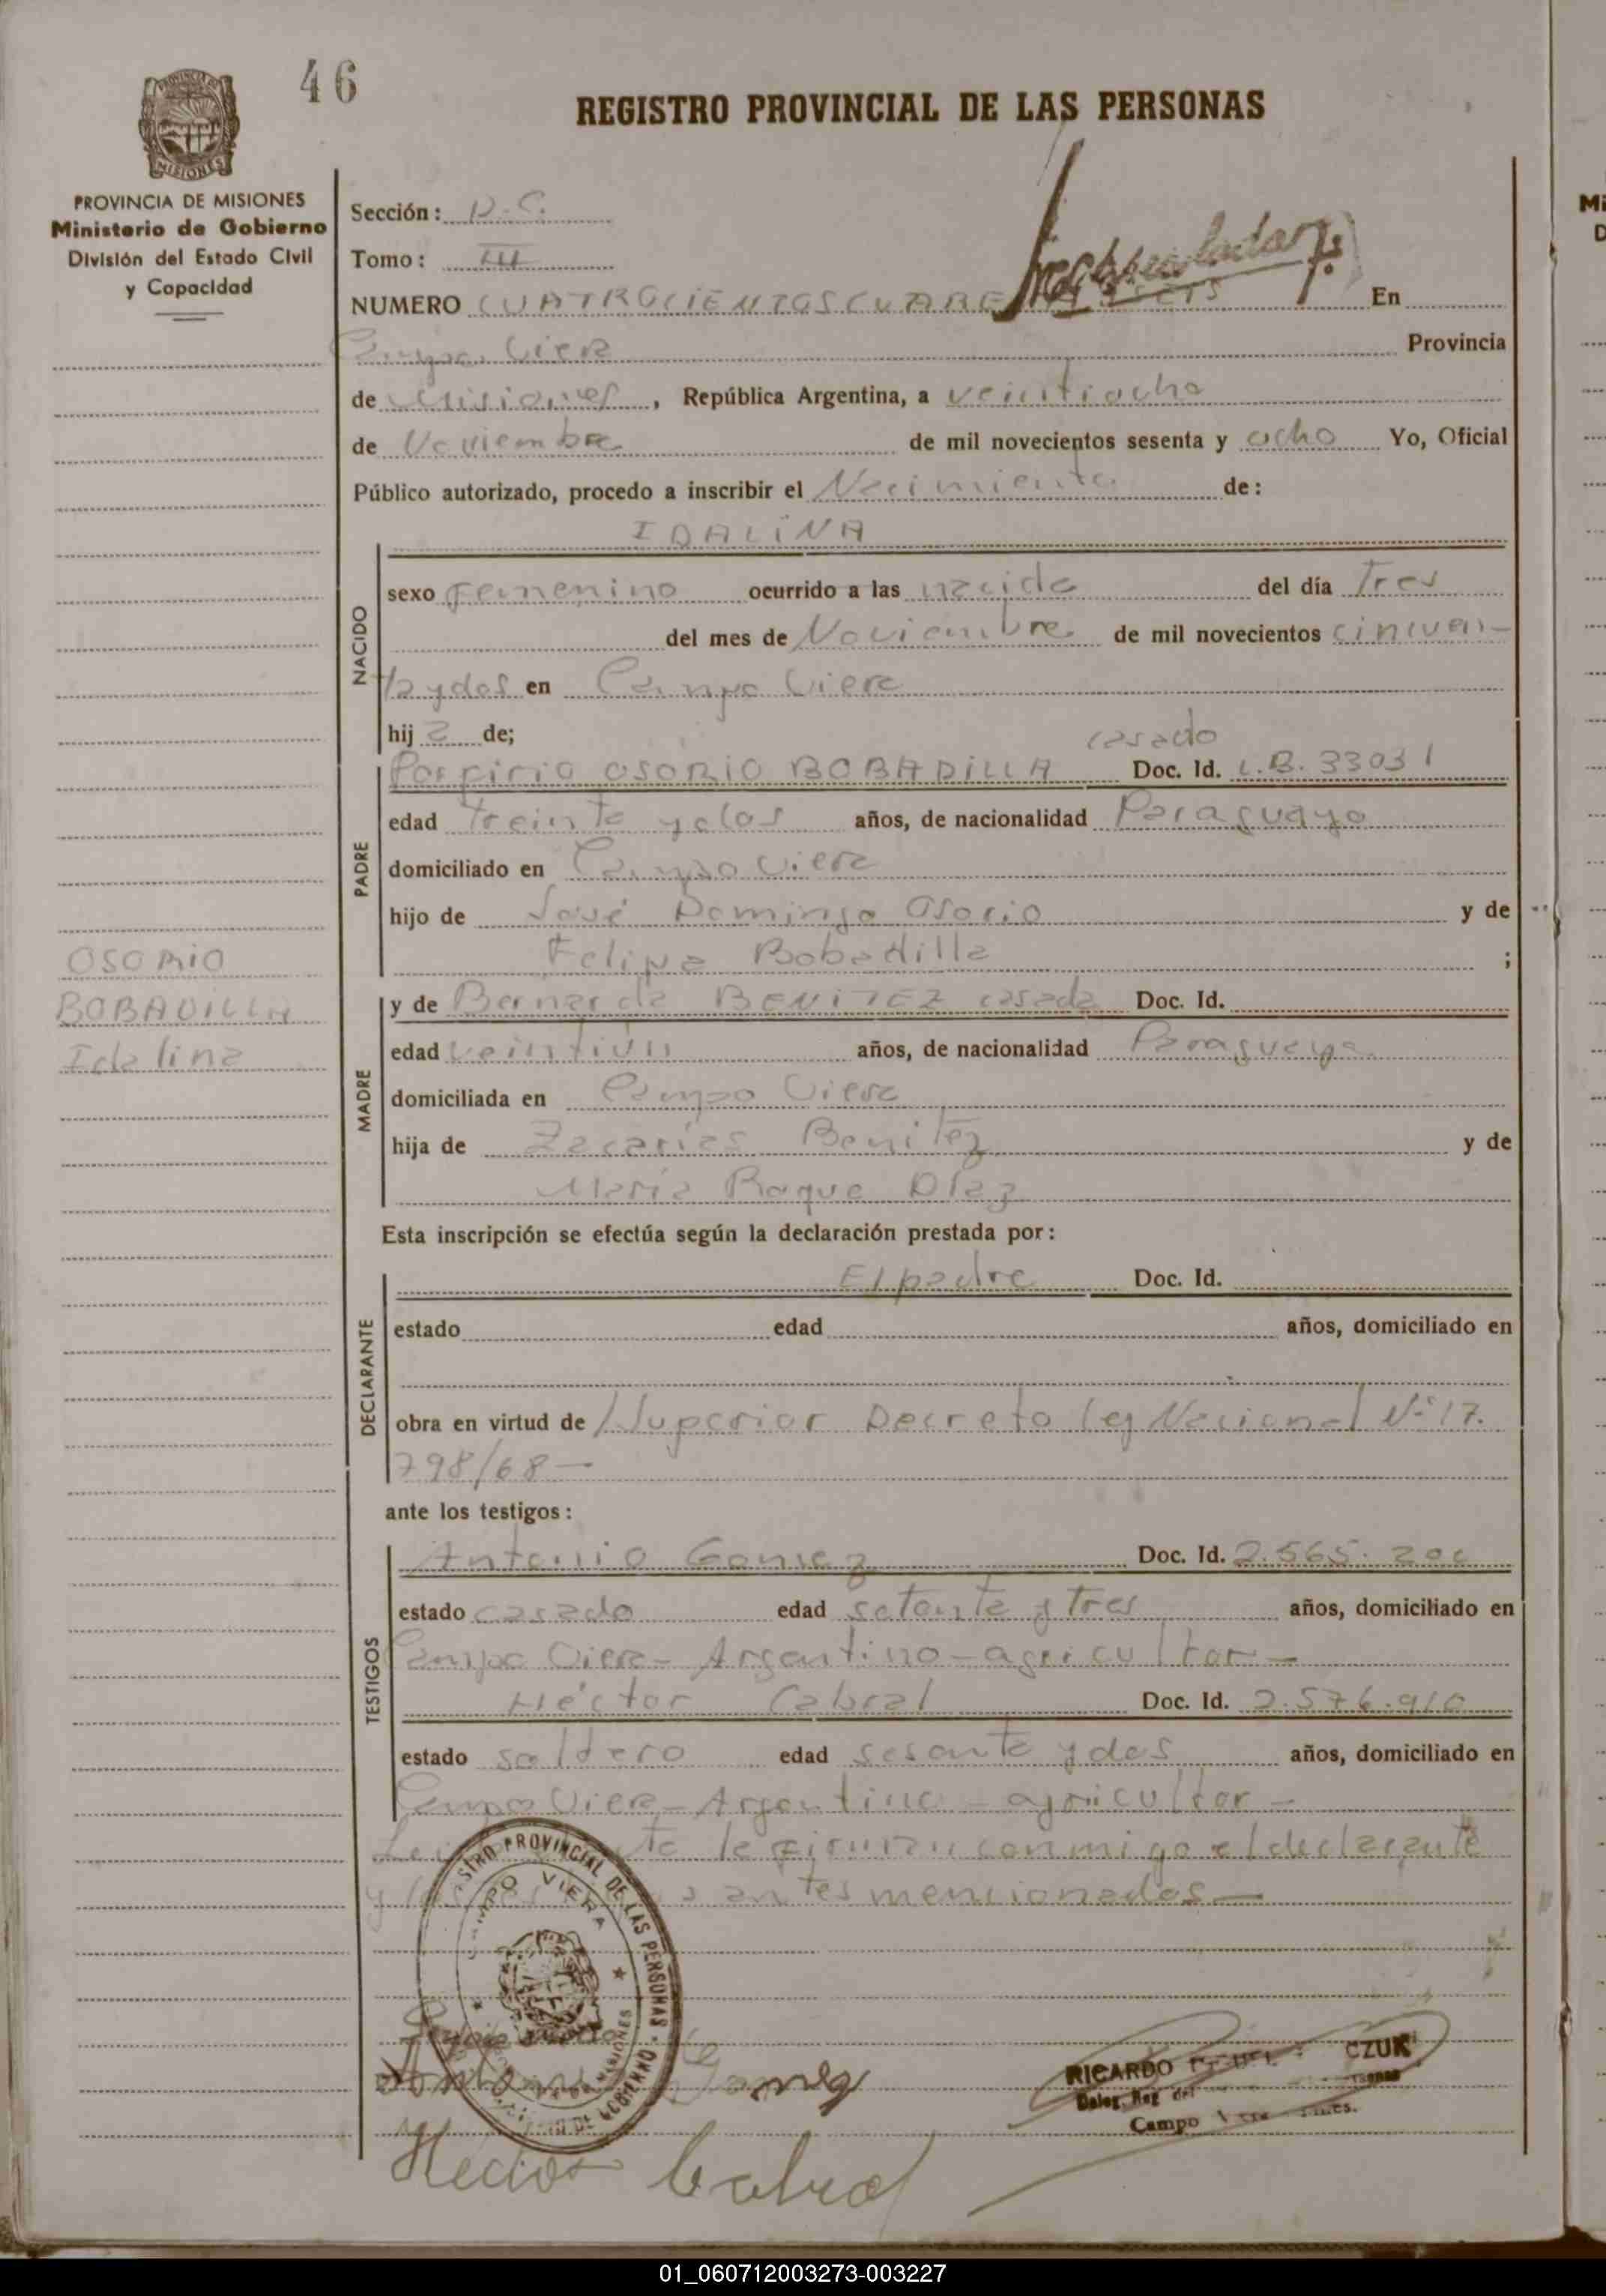 46
REGISTRO PROVINCIAL DE LAS PERSONAS
PROVINCIA DE MISIONES
Ministerio de Gobierno
División del Estado Civil
y Capacidad
Sección:
Tomo: III
NUMERO CUATROCIENTOS CUARE SEIS En
Campo Viera Provincia
de Misiones, República Argentina, a veintiocho
de Noviembre de mil novecientos sesenta y ocho Yo, Oficial
Público autorizado, procedo a inscribir el Nacimiento de:
IDALINA
NACIDO
sexo Femenino ocurrido a las nacida del día Tres
del mes de Noviembre de mil novecientos cincuen-
ta y dos en Campo Viera
hij a de;
casado
PADRE
Porfirio OSORIO BOBADILLA Doc. Id. L.B. 33031
edad treinta y dos años, de nacionalidad Paraguayo
domiciliado en Campo Viera
hijo de José Domingo Osorio y de
Felipa Bobadilla ;
OSORIO
BOBADILLA
Idalina
MADRE
y de Bernarda BENITEZ casada Doc. Id.
edad veintiún años, de nacionalidad Paraguaya
domiciliada en Campo Viera
hija de Zacarías Benitez y de
María Roque Díaz
Esta inscripción se efectúa según la declaración prestada por:
DECLARANTE
El padre Doc. Id.
estado edad años, domiciliado en
obra en virtud de Superior Decreto Ley Nacional Nº 17.
798/68—
ante los testigos:
TESTIGOS
Antonio Gomez Doc. Id. 2.565.
estado casado edad setenta y tres años, domiciliado en
Campo Viera - Argentino - agricultor -
Héctor Cabral Doc. Id. 2.576.910
estado soltero edad sesenta y dos años, domiciliado en
Campo Viera - Argentino - agricultor -
firman conmigo el declarante
y los antes mencionados—
REGISTRO PROVINCIAL DE LAS PERSONAS
CAMPO VIERA
MISIONES
Gomez
RICARDO CZUK
Deleg. Reg. del
Campo
Hector Cabral
01_060712003273-003227